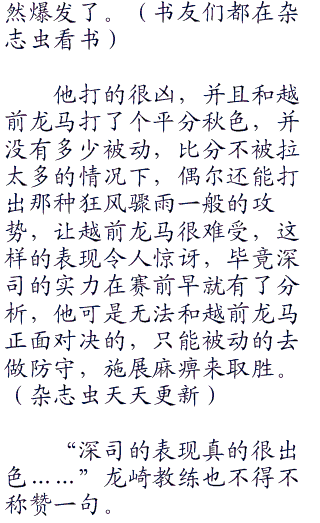 然爆发了。（书友们都在杂
志虫看书）
他打的很凶，并且和越
前龙马打了个平分秋色，并
没有多少被动，比分不被拉
太多的情况下，偶尔还能打
出那种狂风骤雨一般的攻
势，让越前龙马很难受，这
样的表现令人惊讶，毕竟深
司的实力在赛前早就有了分
析，他可是无法和越前龙马
正面对决的，只能被动的去
做防守，施展麻痹来取胜。
（杂志虫天天更新）
“深司的表现真的很出
色……”龙崎教练也不得不
称赞一句。